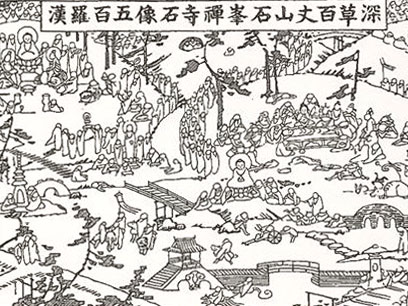 深草百丈山石峯禪寺石像五百羅漢